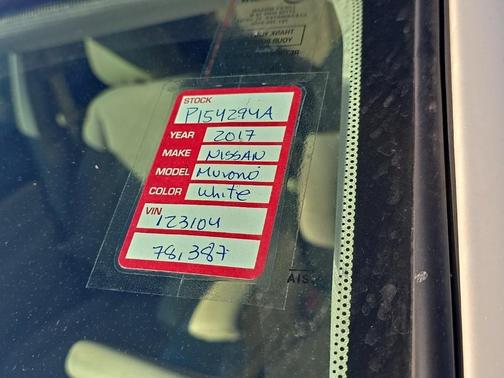 STOCK
P154294A
YEAR 2017
MAKE NISSAN
MODEL Murano
COLOR White
VIN
123104
78,387
AIS